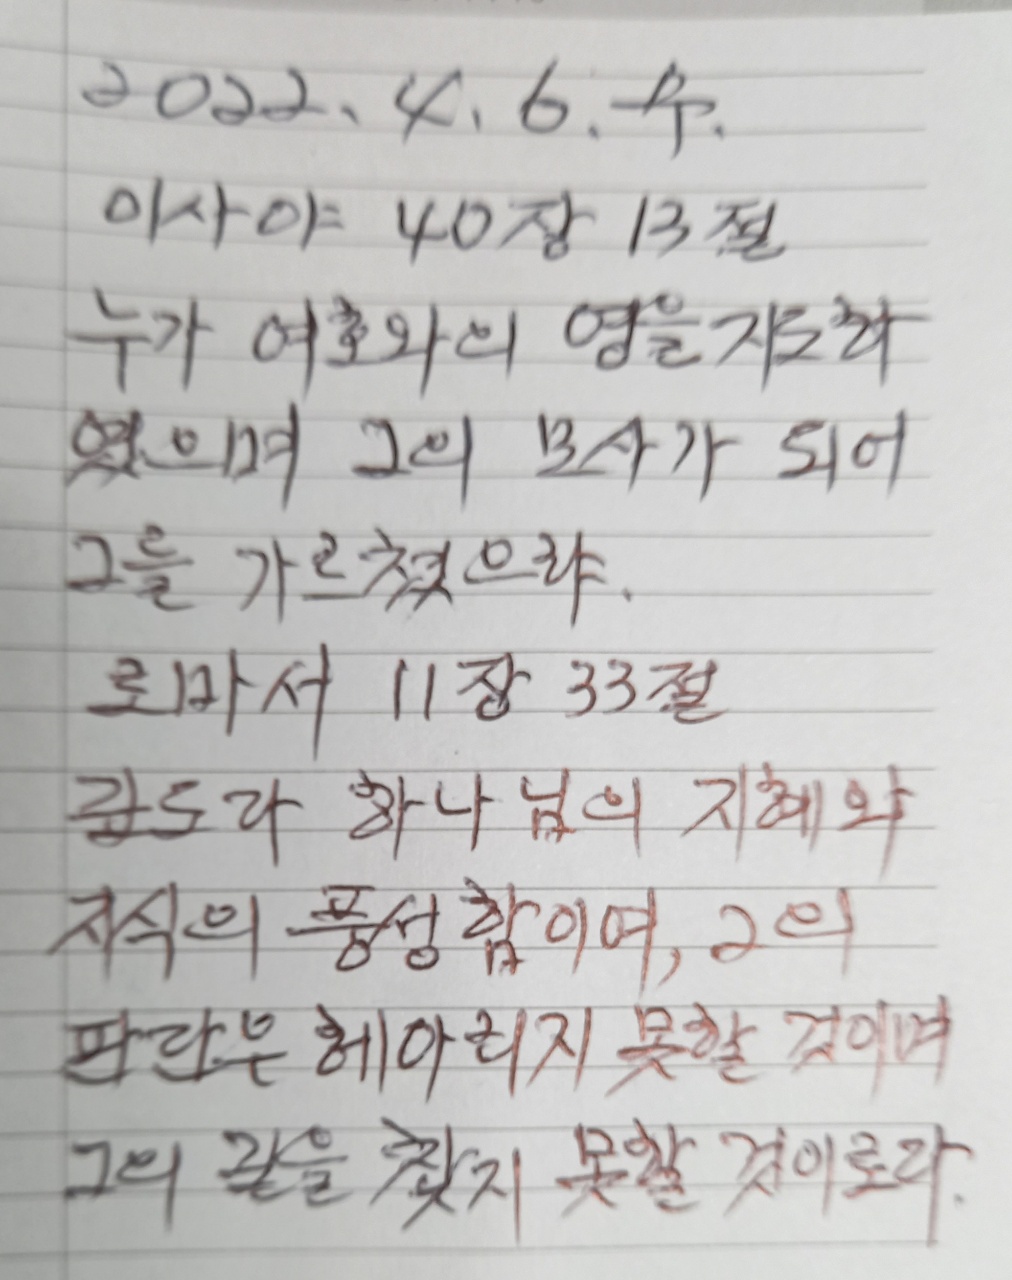 2022. 4. 6. 수.
이사야 40장 13절
누가 여호와의 영을 지도하
였으며 그의 모사가 되어
그를 가르쳤으랴.
로마서 11장 33절
깊도다 하나님의 지혜와
지식의 풍성함이여, 그의
판단은 헤아리지 못할 것이며
그의 길을 찾지 못할 것이로다.